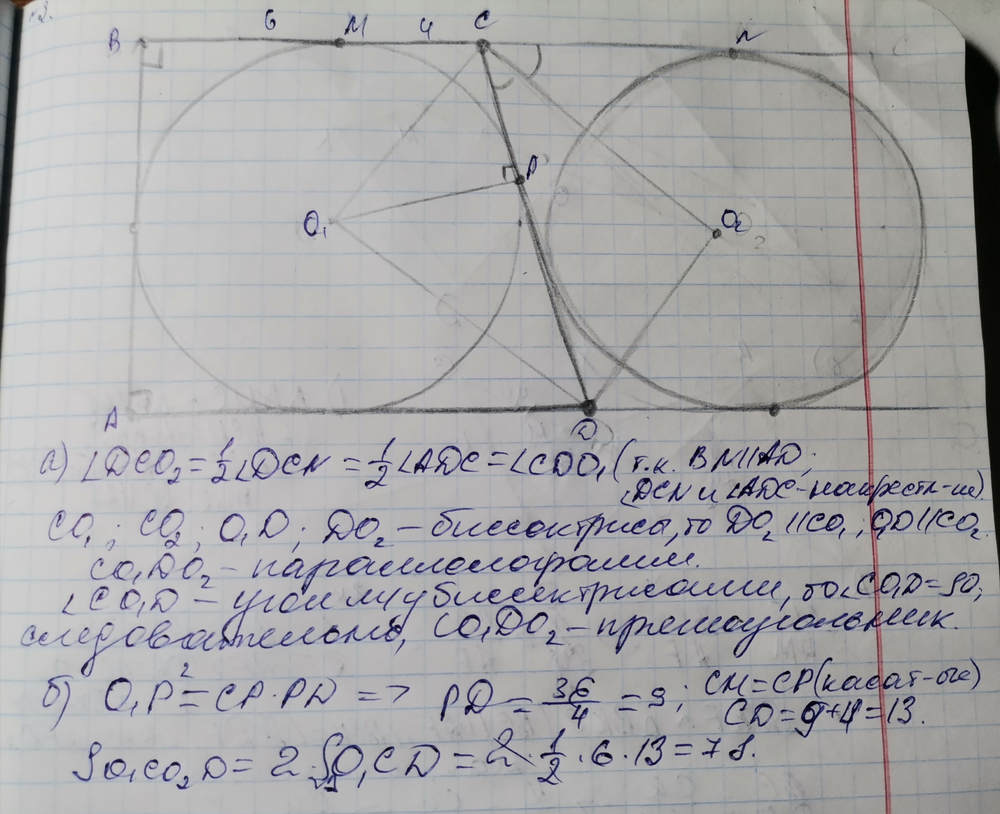 6 M 4 C N
B
P
O₁ O₂
A D
а) ∠DCO₂ = ½∠DCN = ½∠ADC = ∠CDO₁ (т.к. BN||AD;
∠DCN и ∠ADC - накрестл-ие).
CO₁; CO₂; O₁D; DO₂ - биссектрисы, то DO₂||CO₁; O₁D||CO₂.
CO₁DO₂ - параллелограмм.
∠CO₁D - угол м/у биссектрисами, то ∠CO₁D = 90,
следовательно, CO₁DO₂ - прямоугольник.
б) O₁P² = CP·PD => PD = 36/4 = 9; CM = CP (касат-ые)
CD = 9+4 = 13.
SO₁CO₂D = 2·SO₁CD = 2·½·6·13 = 78.